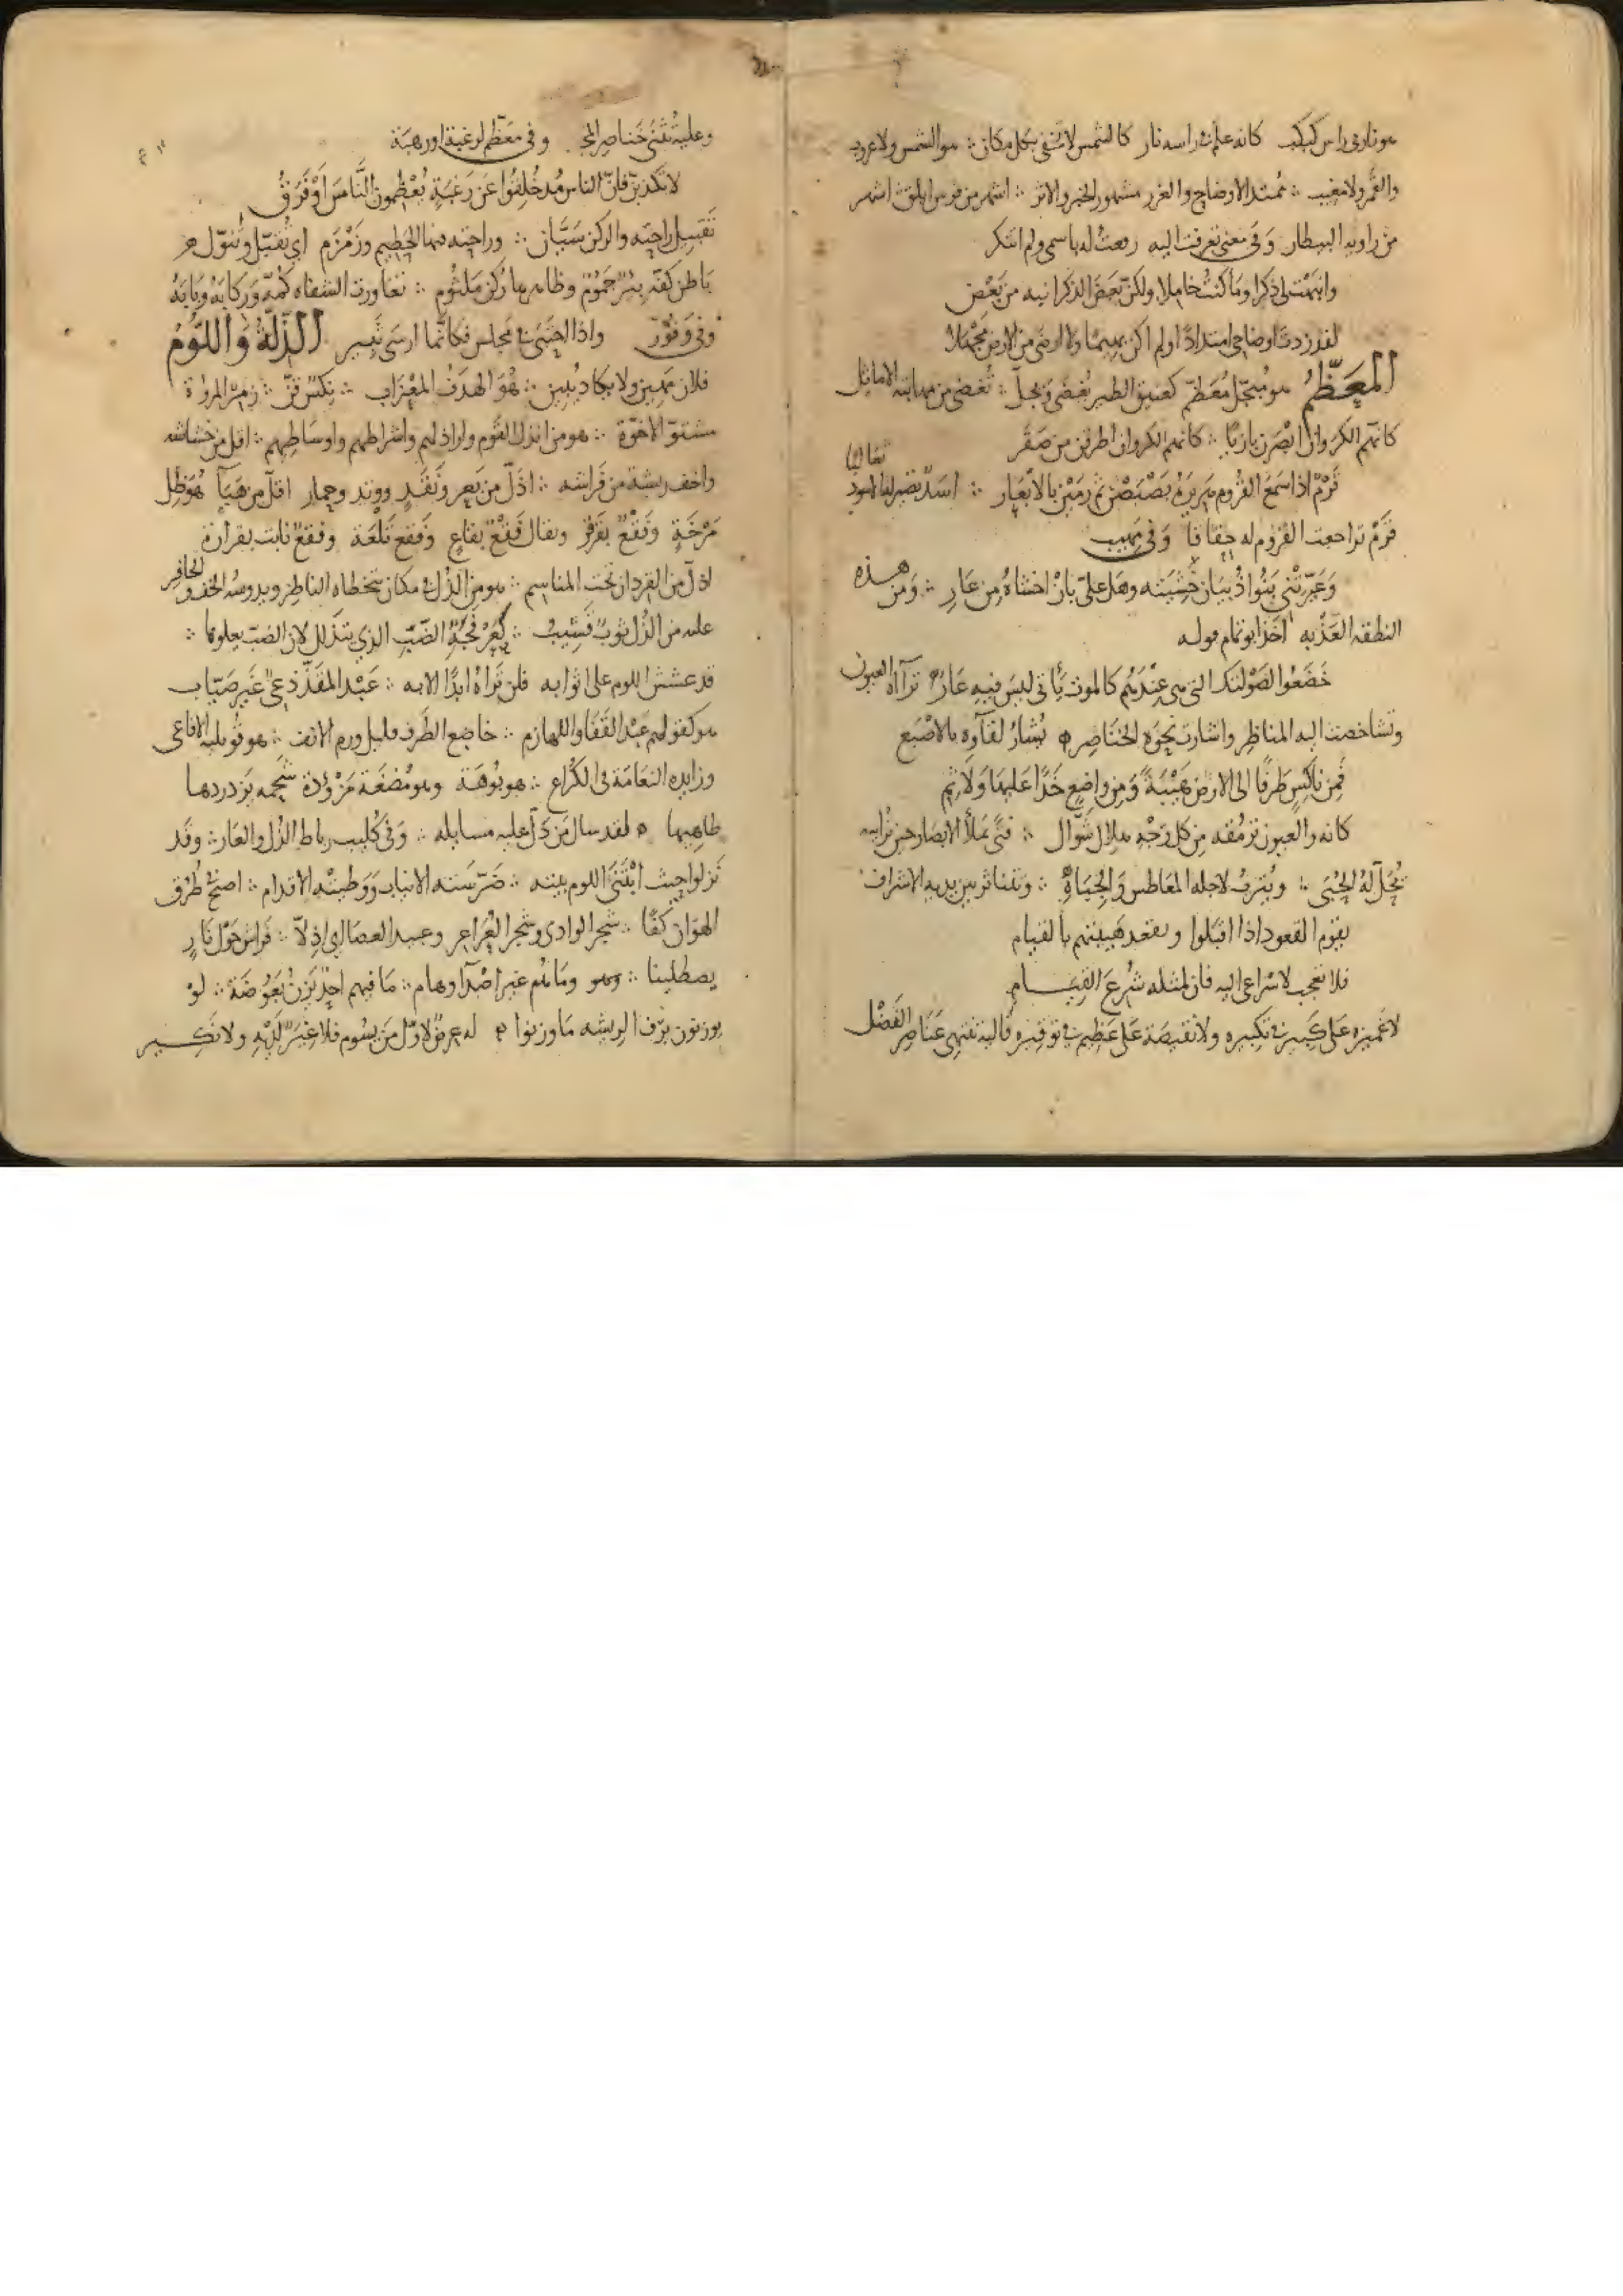 هو نار في راس كبكب كانه علم في راسه نار كالشمس لا تخفى بكل مكان ؞ هو الشمس ولا غروب
والقمر ولا مغيب ؞ ممتد الاوضاح والغرر مشهور الخبر والاثر ؞ اشهر من فرس ابلق اشهر
من راويه البيطار وَفى معنى تعرفت اليه رفعت له باسمى ولم انكر
وانبهت لى ذكرا وما كنت خاملا ولكن بعض الذكر انبه من بَعْض
لقد زدت اوضاحى امتدادا ولم اكن بهيما ولا ارضى من الارض مَجْهَلا
المعَظَّمُ هو مُبجّل مُعَظّم كعتيق الطير يُغضى ويُجلّ ؞ تُغضى من مهابته الاماثل
كانهم الكروان ابصرن بازيا ؞ كانهم الكروان اطرقن من صَقر
قَرْمٌ اذا سَمعَ القروم هَريرَهُ بَصْبَصْنَ ثم رَمَيْنَ بالابْعَار ؞ اسَدٌ تصير له الاسود ثعالبا
قَرْمٌ تراجعت القروم له حِقاقا وَفى مَهيب
وَعَيّرتْنى بَنُوا ذُبيَان خَشيَتَه وهَل علىّ بأنْ اخشاهُ مِن عَارِ ؞ وَمن هذه
النطقه العَذْبه اخَذ ابو تمام قوله
خَضَعُوا لصَوْلتك التى هى عِنْدَهُم كالموت يَأتى ليسَ فيهِ عَارُ ترآاه العيون
وتشاخصت اليه المناظر واشارت نحوَه الخناصِر يُشارُ لقآوه بالاصْبَع
فَمِن ناكِسٍ طَرفًا الى الارض هَيْبَةً وَمن واضِعٍ خَدًّا عَليهَا وَلَاثِم
كانه والعيون ترمُقه مِن كل وَجْهٍ هلال شوّال ؞ فتًى يملأ الابصار حين تُرايه
تُحَلّ لهُ الحُبَى ؞ ويُتربُ لاجله المعَاطس وَالجِبَاهُ ؞ وتتناثر بين يديه الاشراف
يقوم القعود اذا اقبلوا وتقعد هَيبتهم بالقيام
فلا تعجب لاسْراعى اليه فان لمثله شُرِعَ القيام
لا غميزه عَلى كبير فى تكبيره ولا نقيصَة عَلى عَظيم فى توقيره فاليه تنتهى عَناصِر الفَضْل
وعليه تُثْنَى خَناصِر المجد وفى معَظّم لرغبة او رهبَة
لا تكذبنّ فانّ الناس مُذ خُلِقُوا عَن رَغبَةٍ يُعْظمون النَّاسَ اوْ فَرَقُ
تَقبيل راحتِه والركن سَيّان ؞ وراحته منها الحَطيم وزَمْزَم اى تُقبّل وتُنوّل
بَاطن كفّه بِئْرٌ جَمُوْمٌ وظاهرها رُكن مَلثُوم ؞ تعاورت الشفاه كمّه وَركابَهُ وبَابَهُ
وفى وَقُورٍ واذا احتبى فى مَجلس فكانّما ارسَى ثبير الذّلَّةُ وَاللَّوُمُ
فلان مَهين ولا يكاد يُبين ؞ هُوَ الهدَفُ المعْزَاب ؞ نِكسٌ قزّ ؞ زَمِرُ المرؤة
مشنوّ الاخوّة ؞ هو من انذال القَوم واراذلهم واشراطهم واوسَاطِهم ؞ اقل من خشاشه
واخف ريشة من فَراشه ؞ اذلّ من بَعيرٍ ونَقَدٍ ووتد وحمار اقلّ من هَبَآءٍ هُوَ ظِل
مَرْخَةٍ وَفَقْعٌ بِقَرقر ويقال فَقْعٌ بقاعٍ وَفَقعُ تَلْعَة وفقعٌ نابت بقرارة
اذلّ من القردان تحت المناسم ؞ هو من الذلّ فى مكان يتخطاه الناظر ويدوسُه الخفّ والحافِر
عليه من الذُل ثوبٌ قَشيبٌ ؞ كعَرْفَجَةِ الضّبِّ الذى يتذَلّل لان الضبّ يعلوها ؞
قد عشش اللوم على اثوابه فلن تَرَاهُ ابدًا الا به ؞ عَبْد المقَذّ دَعِىٌّ غير صَيّاب
هو كقولهم عَبْد القَفَا واللهازم ؞ خاضِع الطَرف قليل ورم الانف ؞ هو قُوبله الافاعى
وزايده النعَامَة فى الكُراع ؞ هو بُوْهَة وهو مُضغَة مَزْؤدة شَحمه يزدردها
طاهِيها لقد سال مَن ذلّ عليه مسايله ؞ وَفى كُليب رباط الذُل والعَار ؞ وقَد
نَزلوا حيث ابْتَنَى اللوم بيته ؞ ضَرّسَته الانياب وَوَطئته الاقدام ؞ اصبح طُرُق
الهوَان كفّا ؞ شجر الوادى وشجر العُرَاعِر وعبيد العصَا اى اذِلّا ؞ فَراش حَوْل نَارٍ
يصطلينا ؞ وهو وما هُم غير اصْدآ وهام ؞ مَا فيهم احدٌ يَزنُ بَعُوضَة ؞ لوْ
يوزنون بزف الريشه مَا وزنوا له عِرضٌ لاوّل مَن يَسُوم فلا غِيَرٌ لَدَيْهِ ولا نكير